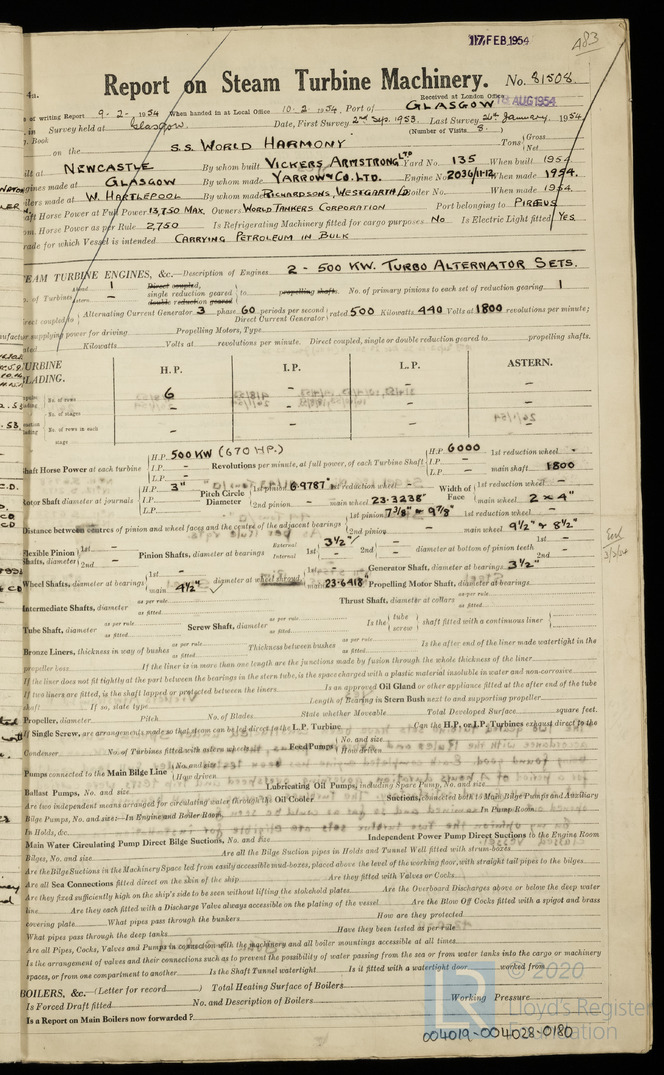 17 FEB 1954
A83
4a.
Report on Steam Turbine Machinery. No. 81508.
Received at London Office 18 AUG 1954
of writing Report 9-2-1954 When handed in at Local Office 10.2.1954 Port of GLASGOW
in Survey held at Glasgow. Date, First Survey 2nd Sep. 1953. Last Survey 26th January, 1954
Book (Number of Visits 8.)
on the S.S. WORLD HARMONY Tons Gross Net
NEWCASTLE By whom built VICKERS ARMSTRONG LTD Yard No. 135 When built 1954.
Engines made at GLASGOW By whom made YARROW & CO. LTD. Engine No. 2036/11-12 When made 1954.
Boilers made at W. HARTLEPOOL By whom made RICHARDSONS, WESTGARTH Boiler No. When made 1954.
Shaft Horse Power at Full Power 13,750 MAX. Owners WORLD TANKERS CORPORATION Port belonging to PIRÆUS
Nom. Horse Power as per Rule 2,750 Is Refrigerating Machinery fitted for cargo purposes No Is Electric Light fitted Yes
Trade for which Vessel is intended CARRYING PETROLEUM IN BULK
STEAM TURBINE ENGINES, &c.—Description of Engines 2 - 500 KW. TURBO ALTERNATOR SETS.
No. of Turbines Ahead 1 Astern – Direct coupled, single reduction geared double reduction geared to propelling shafts. No. of primary pinions to each set of reduction gearing 1
direct coupled to Alternating Current Generator 3 phase 60 periods per second Direct Current Generator rated 500 Kilowatts 440 Volts at 1800 revolutions per minute;
for supplying power for driving Propelling Motors, Type
rated Kilowatts Volts at revolutions per minute. Direct coupled, single or double reduction geared to propelling shafts.
TURBINE BLADING. H.P. I.P. L.P. ASTERN.
No. of rows 6 – – –
No. of stages – – – –
No. of rows in each stage – – – –
Shaft Horse Power at each turbine H.P. 500 KW (670 HP.) I.P. – L.P. – Revolutions per minute, at full power, of each Turbine Shaft H.P. 6000 I.P. – L.P. – 1st reduction wheel - main shaft 1800
Rotor Shaft diameter at journals H.P. 3" I.P. – L.P. – Pitch Circle Diameter 1st pinion 6.9787" 1st reduction wheel – 2nd pinion - main wheel 23.3238" Width of Face 1st reduction wheel – main wheel 2 x 4"
Distance between centres of pinion and wheel faces and the centre of the adjacent bearings 1st pinion 7 3/8" & 9 7/8" 1st reduction wheel – 2nd pinion – main wheel 9 1/2" & 8 1/2"
Flexible Pinion Shafts, diameter 1st – 2nd – Pinion Shafts, diameter at bearings External 3 1/2" Internal – 1st – 2nd – diameter at bottom of pinion teeth 1st – 2nd –
Wheel Shafts, diameter at bearings 1st – main 4 1/2" diameter at wheel shroud 1st – main 23.6418" Generator Shaft, diameter at bearings 3 1/2" Propelling Motor Shaft, diameter at bearings
Intermediate Shafts, diameter as per rule as fitted Thrust Shaft, diameter at collars as per rule as fitted
Tube Shaft, diameter as per rule as fitted Screw Shaft, diameter as per rule as fitted Is the tube screw shaft fitted with a continuous liner
Bronze Liners, thickness in way of bushes as per rule as fitted Thickness between bushes as per rule as fitted Is the after end of the liner made watertight in the
propeller boss If the liner is in more than one length are the junctions made by fusion through the whole thickness of the liner
If the liner does not fit tightly at the part between the bearings in the stern tube, is the space charged with a plastic material insoluble in water and non-corrosive
If two liners are fitted, is the shaft lapped or protected between the liners Is an approved Oil Gland or other appliance fitted at the after end of the tube
shaft If so, state type Length of Bearing in Stern Bush next to and supporting propeller
Propeller, diameter Pitch No. of Blades State whether Moveable Total Developed Surface square feet.
If Single Screw, are arrangements made so that steam can be led direct to the L.P. Turbine Can the H.P. or I.P. Turbines exhaust direct to the
Condenser No. of Turbines fitted with astern wheels Feed Pumps No. and size How driven
Pumps connected to the Main Bilge Line No. and size How driven
Ballast Pumps, No. and size Lubricating Oil Pumps, including Spare Pump, No. and size
Are two independent means arranged for circulating water through the Oil Cooler Suctions, connected both to Main Bilge Pumps and Auxiliary
Bilge Pumps, No. and size:—In Engine and Boiler Room In Pump Room
In Holds, &c.
Main Water Circulating Pump Direct Bilge Suctions, No. and size Independent Power Pump Direct Suctions to the Engine Room
Bilges, No. and size Are all the Bilge Suction pipes in Holds and Tunnel Well fitted with strum-boxes
Are the Bilge Suctions in the Machinery Space led from easily accessible mud-boxes, placed above the level of the working floor, with straight tail pipes to the bilges
Are all Sea Connections fitted direct on the skin of the ship Are they fitted with Valves or Cocks
Are they fixed sufficiently high on the ship's side to be seen without lifting the stokehold plates Are the Overboard Discharges above or below the deep water
line Are they each fitted with a Discharge Valve always accessible on the plating of the vessel Are the Blow Off Cocks fitted with a spigot and brass
covering plate What pipes pass through the bunkers How are they protected
What pipes pass through the deep tanks Have they been tested as per rule
Are all Pipes, Cocks, Valves and Pumps in connection with the machinery and all boiler mountings accessible at all times
Is the arrangement of valves and their connections such as to prevent the possibility of water passing from the sea or from water tanks into the cargo or machinery
spaces, or from one compartment to another Is the Shaft Tunnel watertight Is it fitted with a watertight door worked from
BOILERS, &c. (Letter for record) Total Heating Surface of Boilers
Is Forced Draft fitted No. and Description of Boilers Working Pressure
Is a Report on Main Boilers now forwarded?
© 2020
Lloyd's Register
Foundation
004019-004028-0180